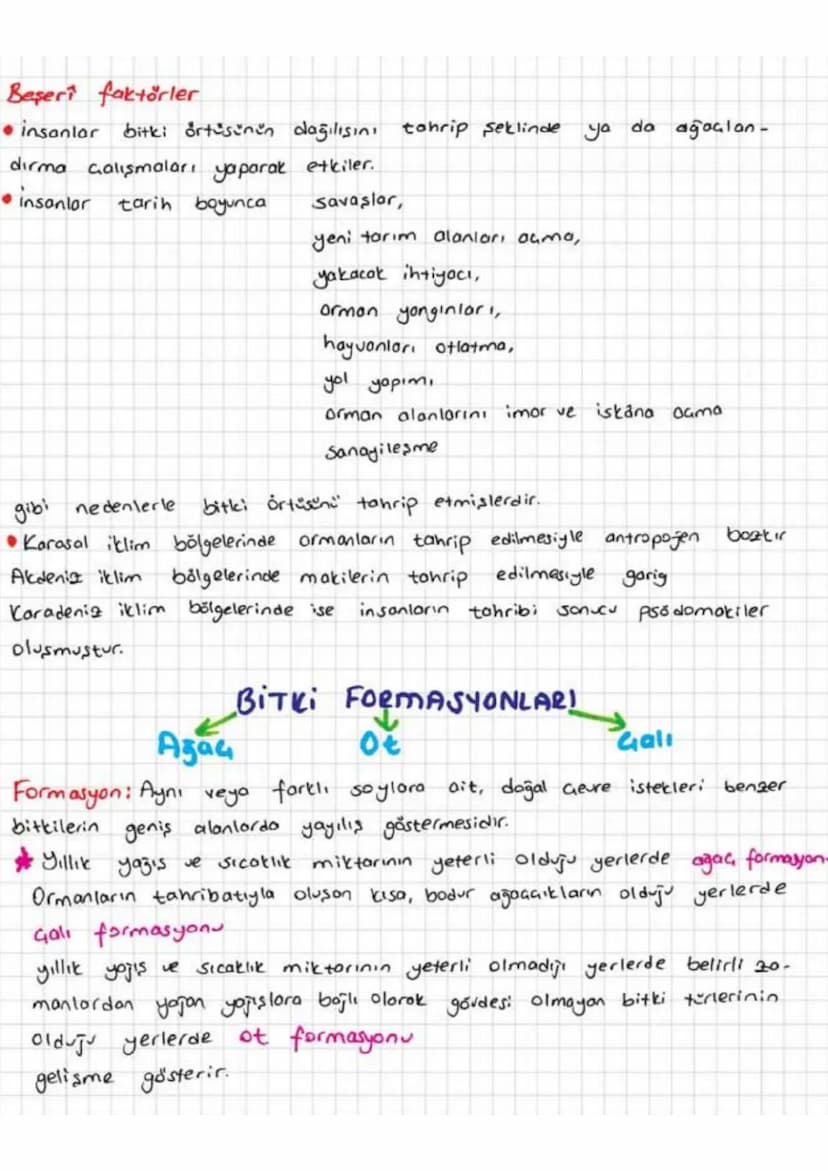 Beşerî faktörler
• insanlar bitki örtüsünün dağılışını tahrip şeklinde ya da ağaçlan-
dırma çalışmaları yaparak etkiler.
• insanlar tarih boyunca savaşlar,
yeni tarım alanları açma,
yakacak ihtiyacı,
orman yangınları,
hayvanları otlatma,
yol yapımı
orman alanlarını imar ve iskâna açma
sanayileşme
gibi nedenlerle bitki örtüsünü tahrip etmişlerdir.
• Karasal iklim bölgelerinde ormanların tahrip edilmesiyle antropojen bozkır
Akdeniz iklim bölgelerinde makilerin tahrip edilmesiyle garig
Karadeniz iklim bölgelerinde ise insanların tahribi sonucu psödomakiler
oluşmuştur.
BİTKİ FORMASYONLARI
Ağaç Ot Çalı
Formasyon: Aynı veya farklı soylara ait, doğal çevre istekleri benzer
bitkilerin geniş alanlarda yayılış göstermesidir.
★ Yıllık yağış ve sıcaklık miktarının yeterli olduğu yerlerde ağaç formasyon
Ormanların tahribatıyla oluşan kısa, bodur ağaççıkların olduğu yerlerde
çalı formasyonu
yıllık yağış ve sıcaklık miktarının yeterli olmadığı yerlerde belirli za-
manlardan yağan yağışlara bağlı olarak gövdesi olmayan bitki türlerinin
olduğu yerlerde ot formasyonu
gelişme gösterir.